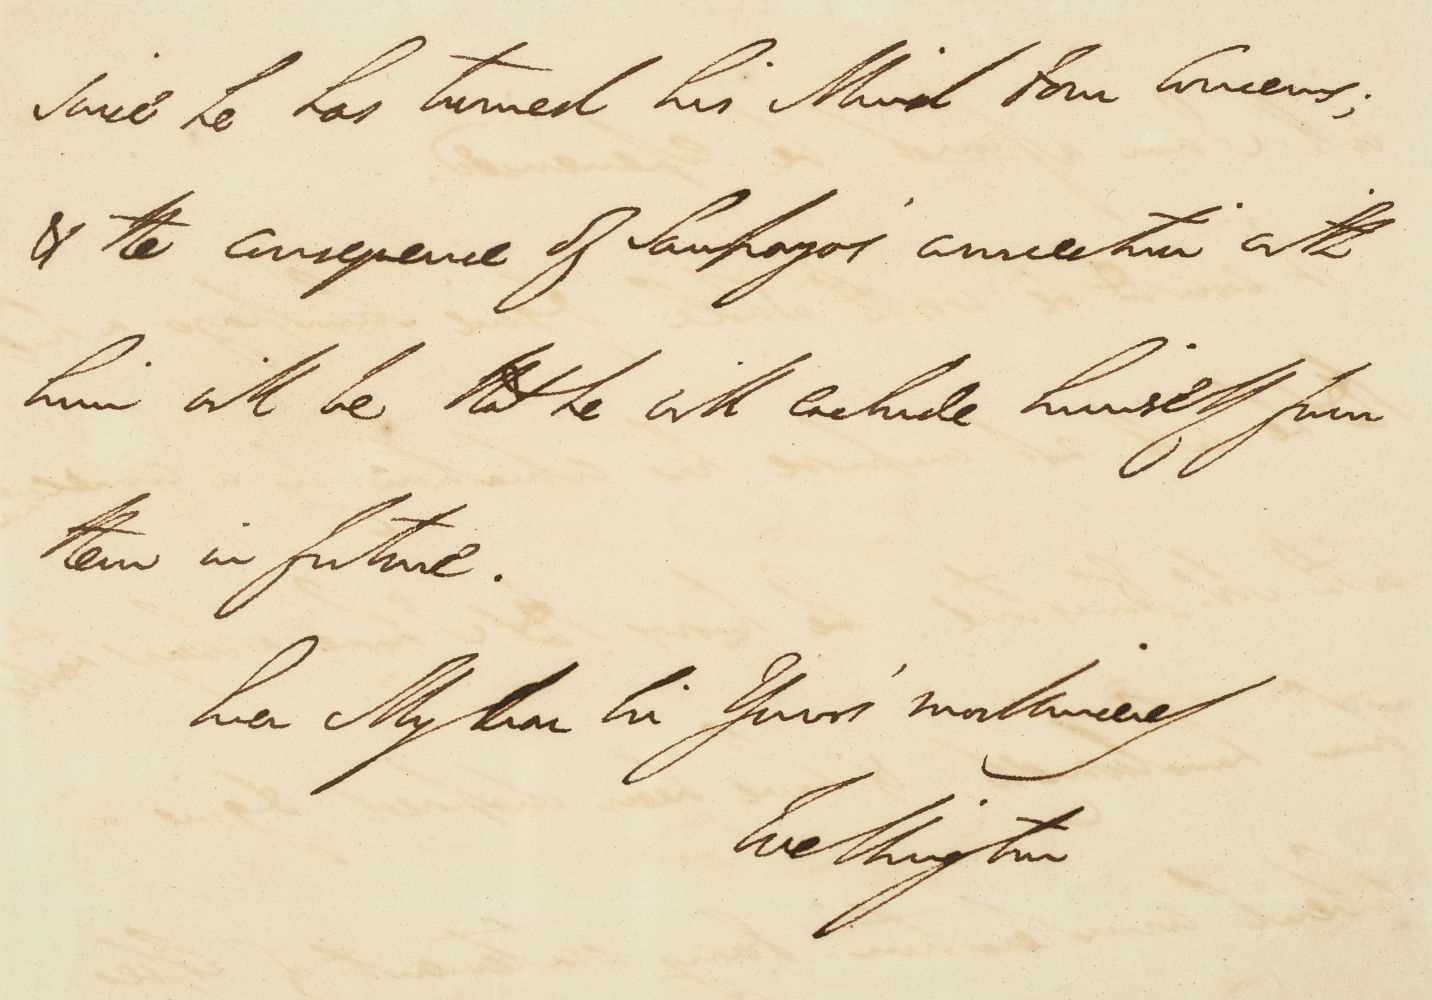 since he has turned his Mind to our Concerns;
& the consequence of Sampayo's connection with
him will be that he will exclude himself from
them in future.
Ever My dear Sir Yours' most sincerely
Wellington